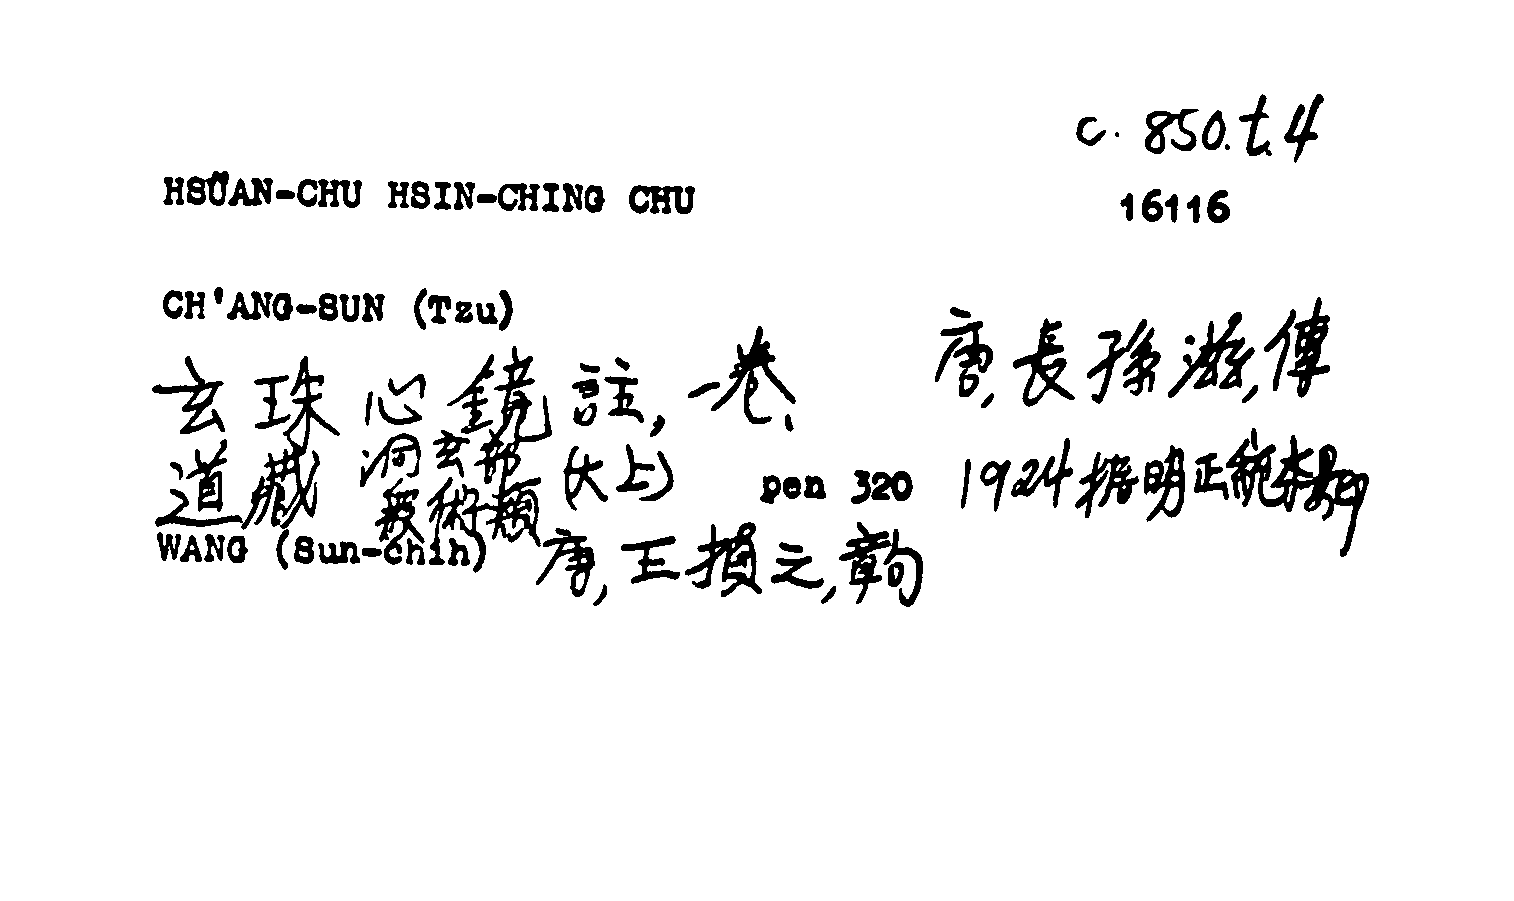 c. 850.t.4
HSÜAN-CHU HSIN-CHING CHU 16116
CH'ANG-SUN (Tzu)
玄珠心鏡註, 一卷, 唐, 長孫滋, 傳
道藏 洞玄部 眾術類 (大上) pen 320 1924 據明正統本影印
WANG (Sun-chih) 唐, 王損之, 章句